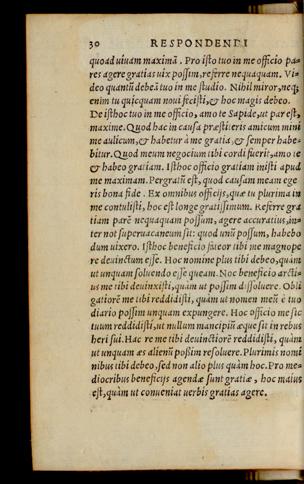 30 RESPONDENDI
quoad uiuam maximã. Pro isto tuo in me officio pa-
res agere gratias uix possim, referre nequaquam. Vi-
deo quantũ debeã tuo in me studio. Nihil miror, neq;
enim tu quicquam noui fecisti, & hoc magis debeo.
De isthoc tuo in me officio, amo te Sapide, ut par est,
maxime. Quod hac in causa præstiteris amicum mini
me aulicum, & habetur à me gratia, & semper habe-
bitur. Quod meum negocium tibi cordi fuerit, amo te
& habeo gratiam. Isthoc officio gratiam inisti apud
me maximam. Pergratũ est, quod causam meam ege
ris bona fide. Ex omnibus officijs, quæ tu plurima in
me contulisti, hoc est longe gratissimum. Referre gra
tiam parẽ nequaquam possum, agere accuratius, in-
ter nos superuacaneum sit: quod unũ possum, habebo
dum uixero. Isthoc beneficio fateor tibi me magnope
re deuinctum esse. Hoc nomine plus tibi debeo, quàm
ut unquam soluendo esse queam. Hoc beneficio arcti-
us me tibi deuinxisti, quàm ut possim dissoluere. Obli
gatiorẽ me tibi reddidisti, quàm ut nomen meũ è tuo
diario possim unquam expungere. Hoc officio me sic
tuum reddidisti, ut nullum mancipiũ æque sit in rebus
heri sui. Hac re me tibi deuinctiorẽ reddidisti, quàm
ut unquam æs alienũ possim resoluere. Plurimis nomi
nibus tibi debeo, sed non alio plus quàm hoc. Pro me-
diocribus beneficijs agendæ sunt gratiæ, hoc maius
est, quàm ut conueniat uerbis gratias agere.